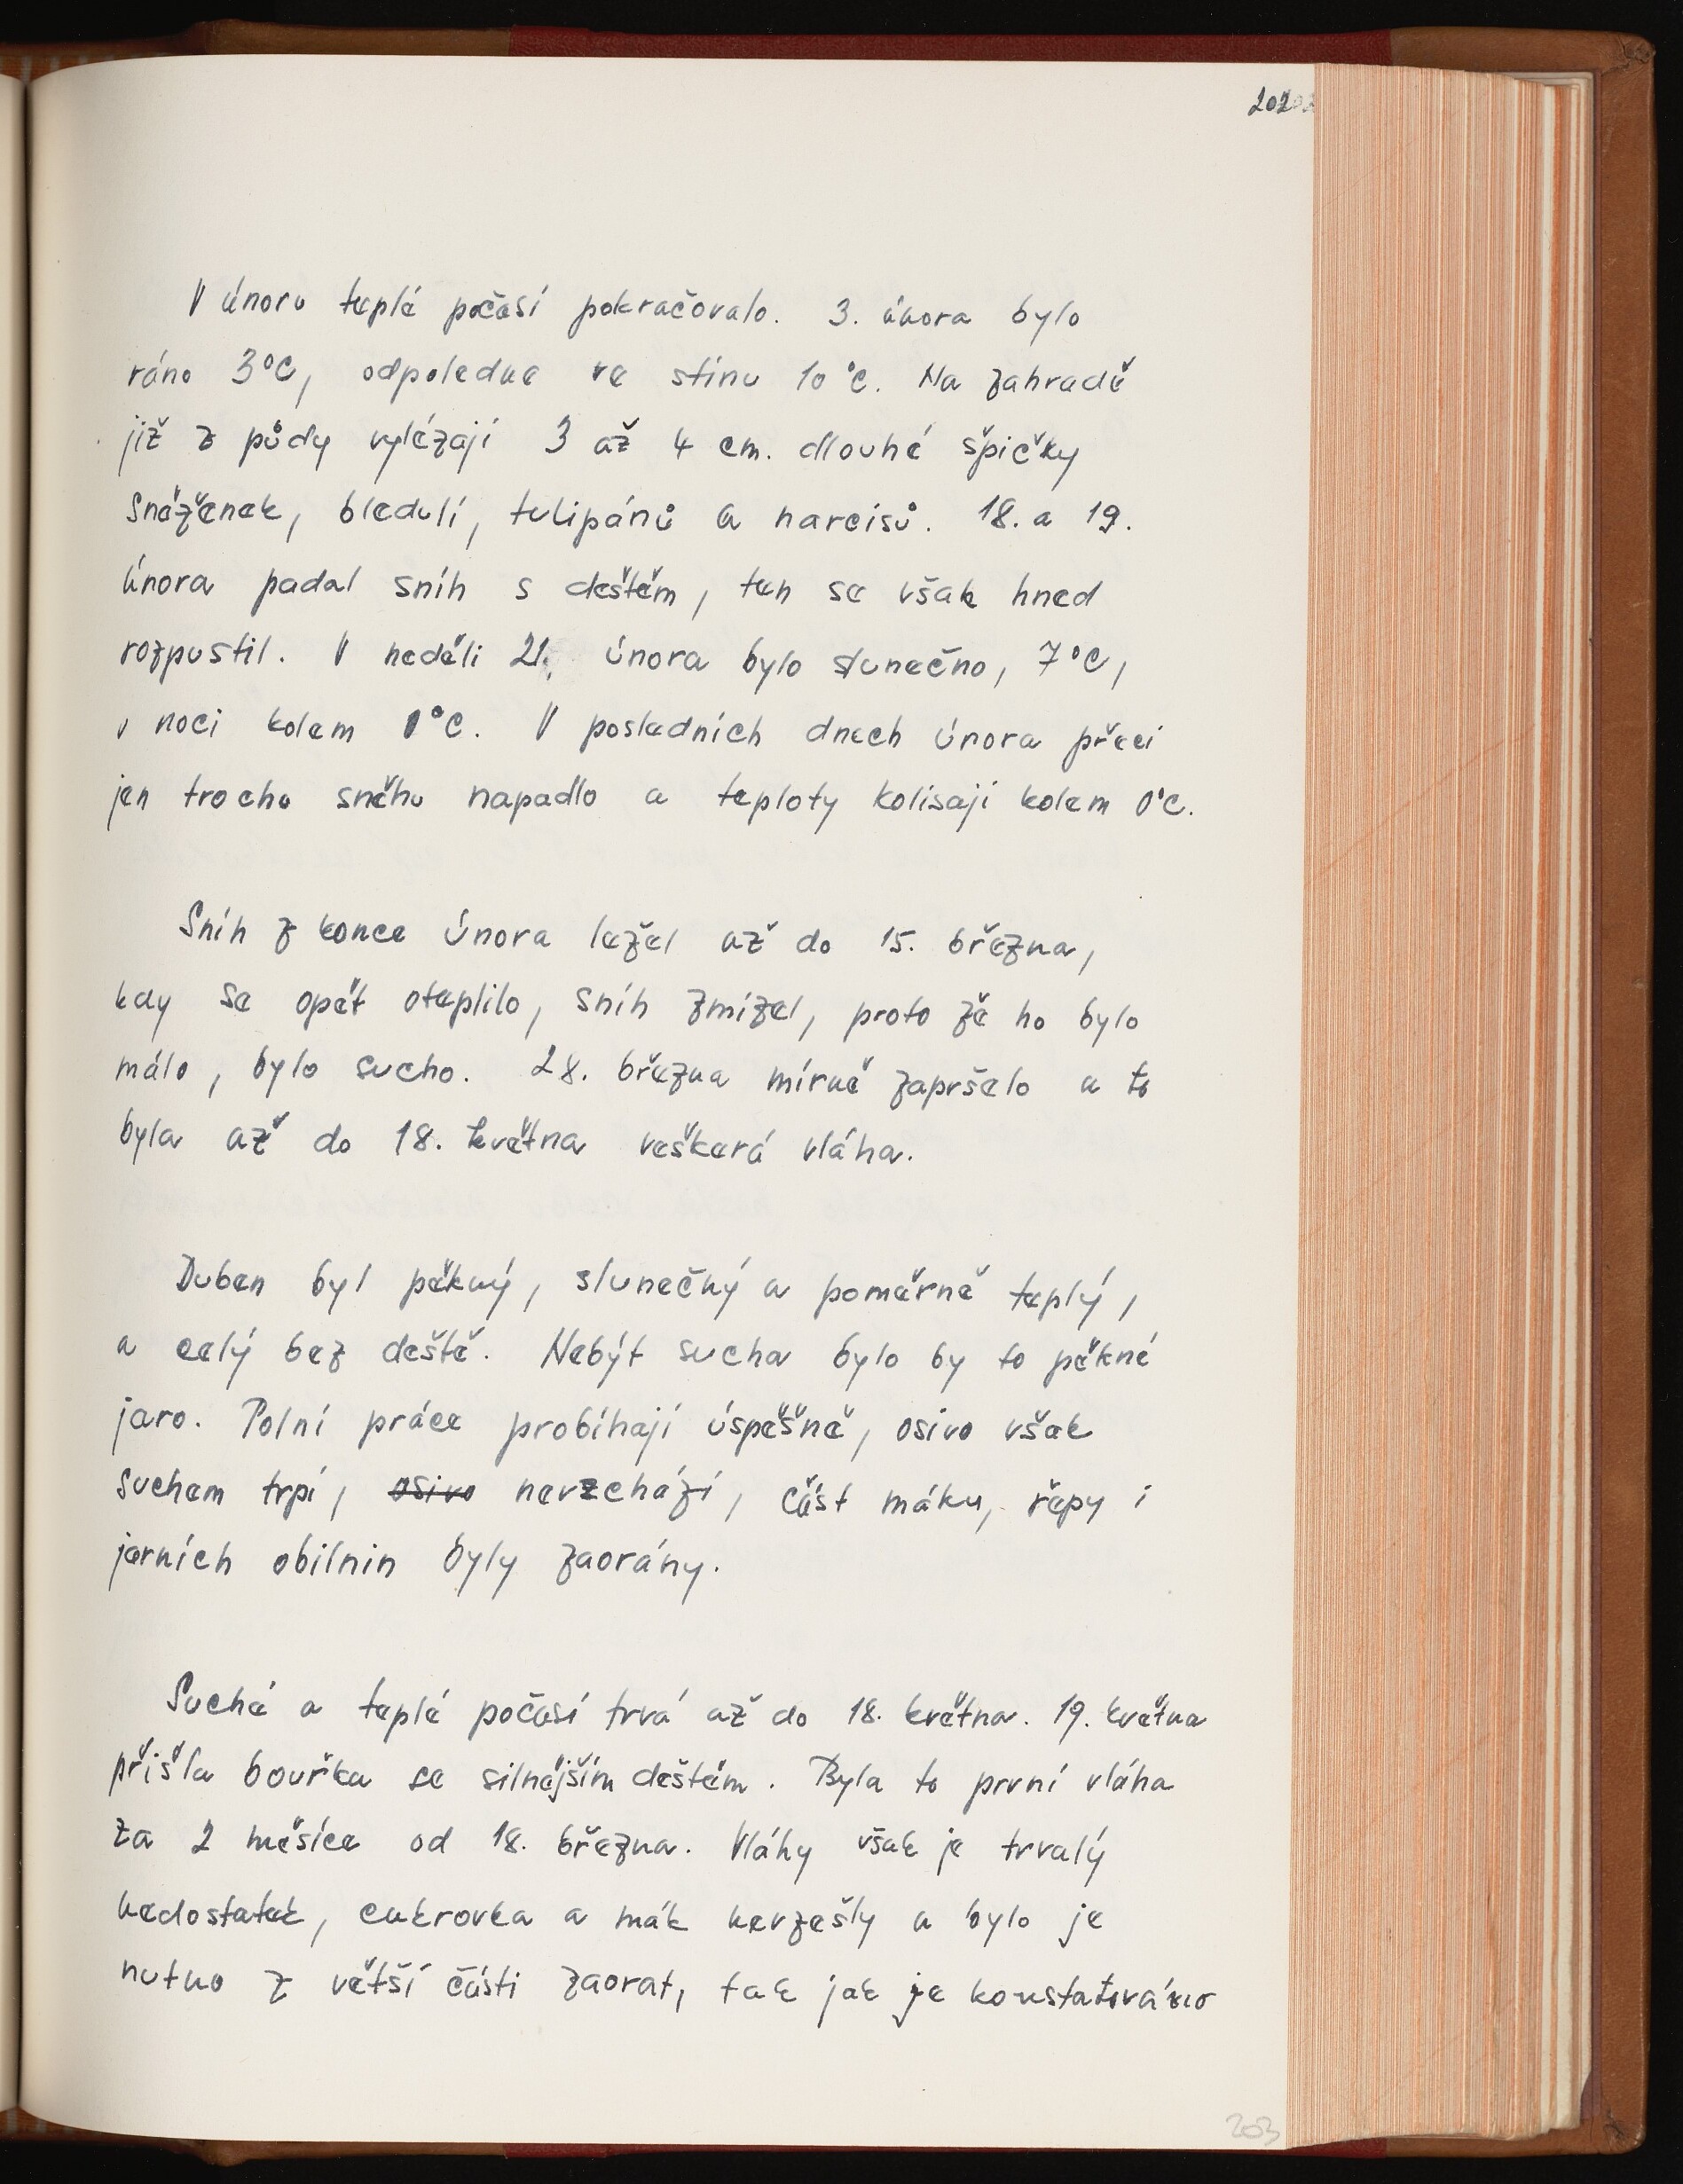 202
V únoru teplé počasí pokračovalo. 3. února bylo
ráno 3°C, odpoledne ve stínu 10°C. Na zahradě
již z půdy vylézají 3 až 4 cm. dlouhé špičky
sněženek, bledulí, tulipánů a narcisů. 18. a 19.
února padal sníh s deštěm, ten se však hned
rozpustil. V neděli 21. února bylo slunečno, 7°C,
v noci kolem 0°C. V posledních dnech února přeci
jen trochu sněhu napadlo a teploty kolisají kolem 0°C.
Sníh z konce února ležel až do 15. března,
kdy se opět oteplilo, sníh zmizel, proto že ho bylo
málo, bylo sucho. 28. března mírně zapršelo a to
byla až do 18. května veškerá vláha.
Duben byl pěkný, slunečný a poměrně teplý,
a celý bez deště. Nebýt sucha bylo by to pěkné
jaro. Polní práce probíhají úspěšně, osivo však
suchem trpí, osivo nevzchází, část máku, řepy i
jarních obilnin byly zaorány.
Suché a teplé počasí trvá až do 18. května. 19. května
přišla bouřka se silnějším deštěm. Byla to první vláha
za 2 měsíce od 18. března. Vláhy však je trvalý
nedostatek, cukrovka a mák nevzešly a bylo je
nutno z větší části zaorat, tak jak je konstatováno
203